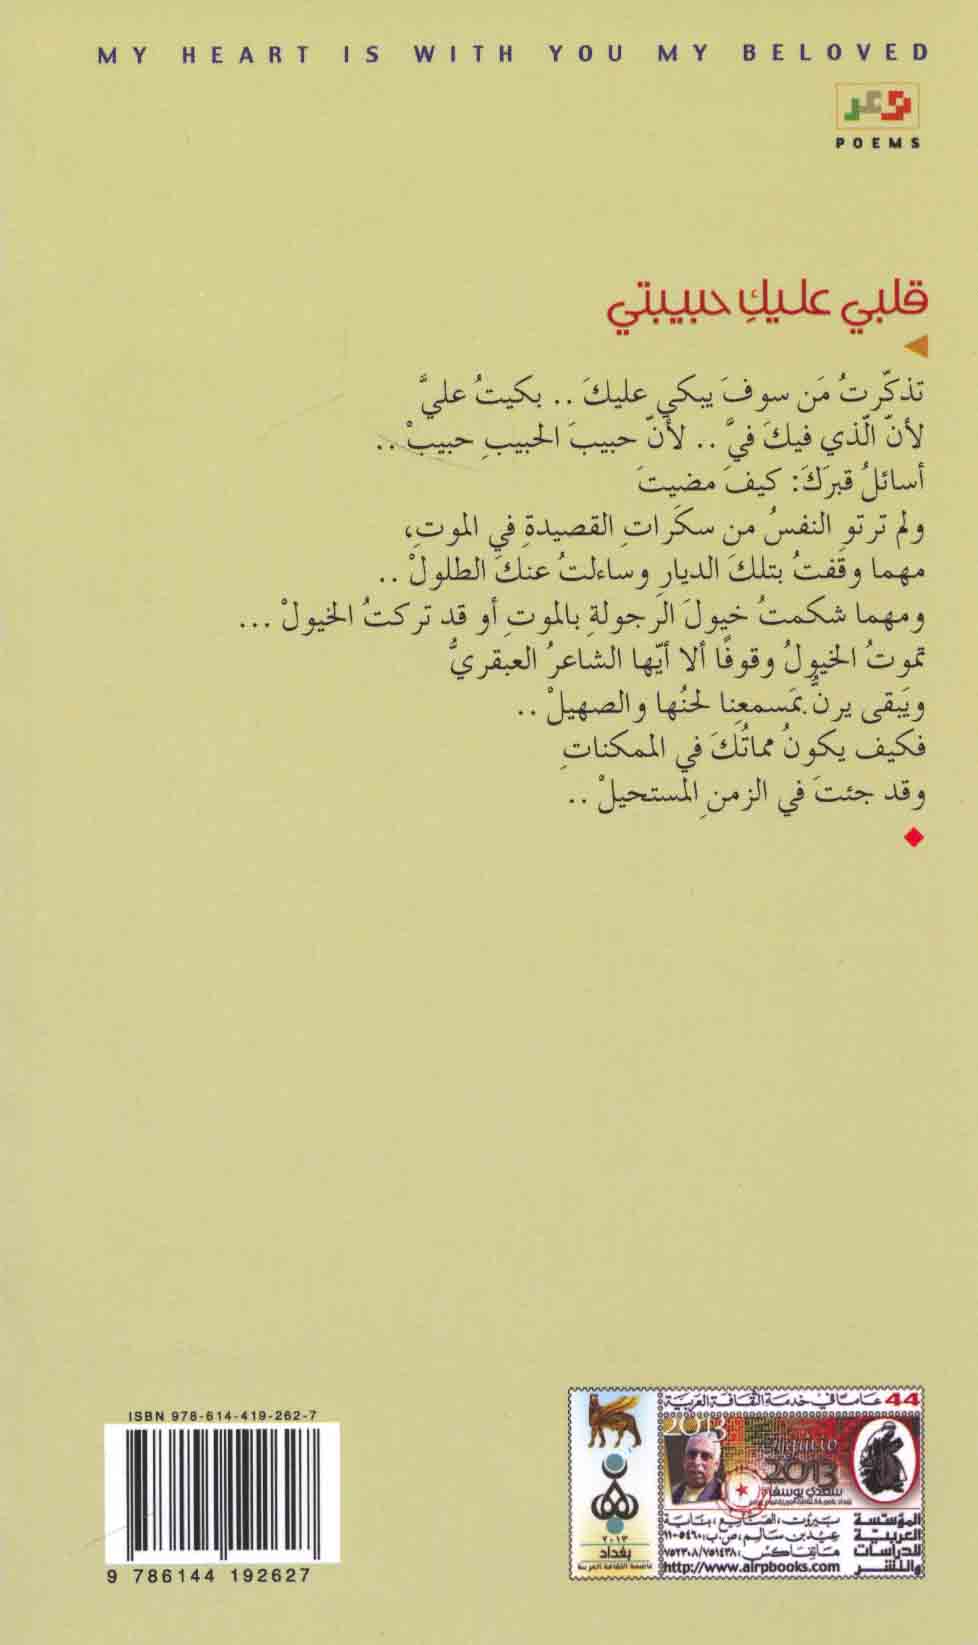 MY HEART IS WITH YOU MY BELOVED
شعر
POEMS
قلبي عليكِ حبيبتي
تذكّرتُ مَن سوفَ يبكي عليكَ .. بكيتُ عليَّ
لأنّ الّذي فيكَ فيَّ .. لأنّ حبيبَ الحبيبِ حبيبْ ..
أسائلُ قبرَكَ: كيفَ مضيتَ
ولم ترتوِ النفسُ من سكَراتِ القصيدةِ في الموتِ،
مهما وقفتُ بتلكَ الديارِ وساءلتُ عنكَ الطلولْ ..
ومهما شكمتُ خيولَ الرجولةِ بالموتِ أو قد تركتُ الخيولْ ...
تموتُ الخيولُ وقوفًا ألا أيّها الشاعرُ العبقريُّ
ويَبقى يرنُّ بمَسمعِنا لحنُها والصهيلْ ..
فكيف يكونُ مماتُكَ في الممكناتِ
وقد جئتَ في الزمنِ المستحيلْ ..
ISBN 978-614-419-262-7
9 786144 192627
44 عاماً في خدمة الثقافة العربية
2013
2013
سعدي يوسف
٢٠١٣
بغداد
عاصمة الثقافة العربية
المؤسسة
العربية
للدراسات
والنشر
بيروت، الصنايع، بناية
عيد بن سالم، ص.ب: ٥٤٦٠-١١
هاتفاكس: ٧٥١٤٣٨/٧٥٢٣٠٨
http://www.airpbooks.com